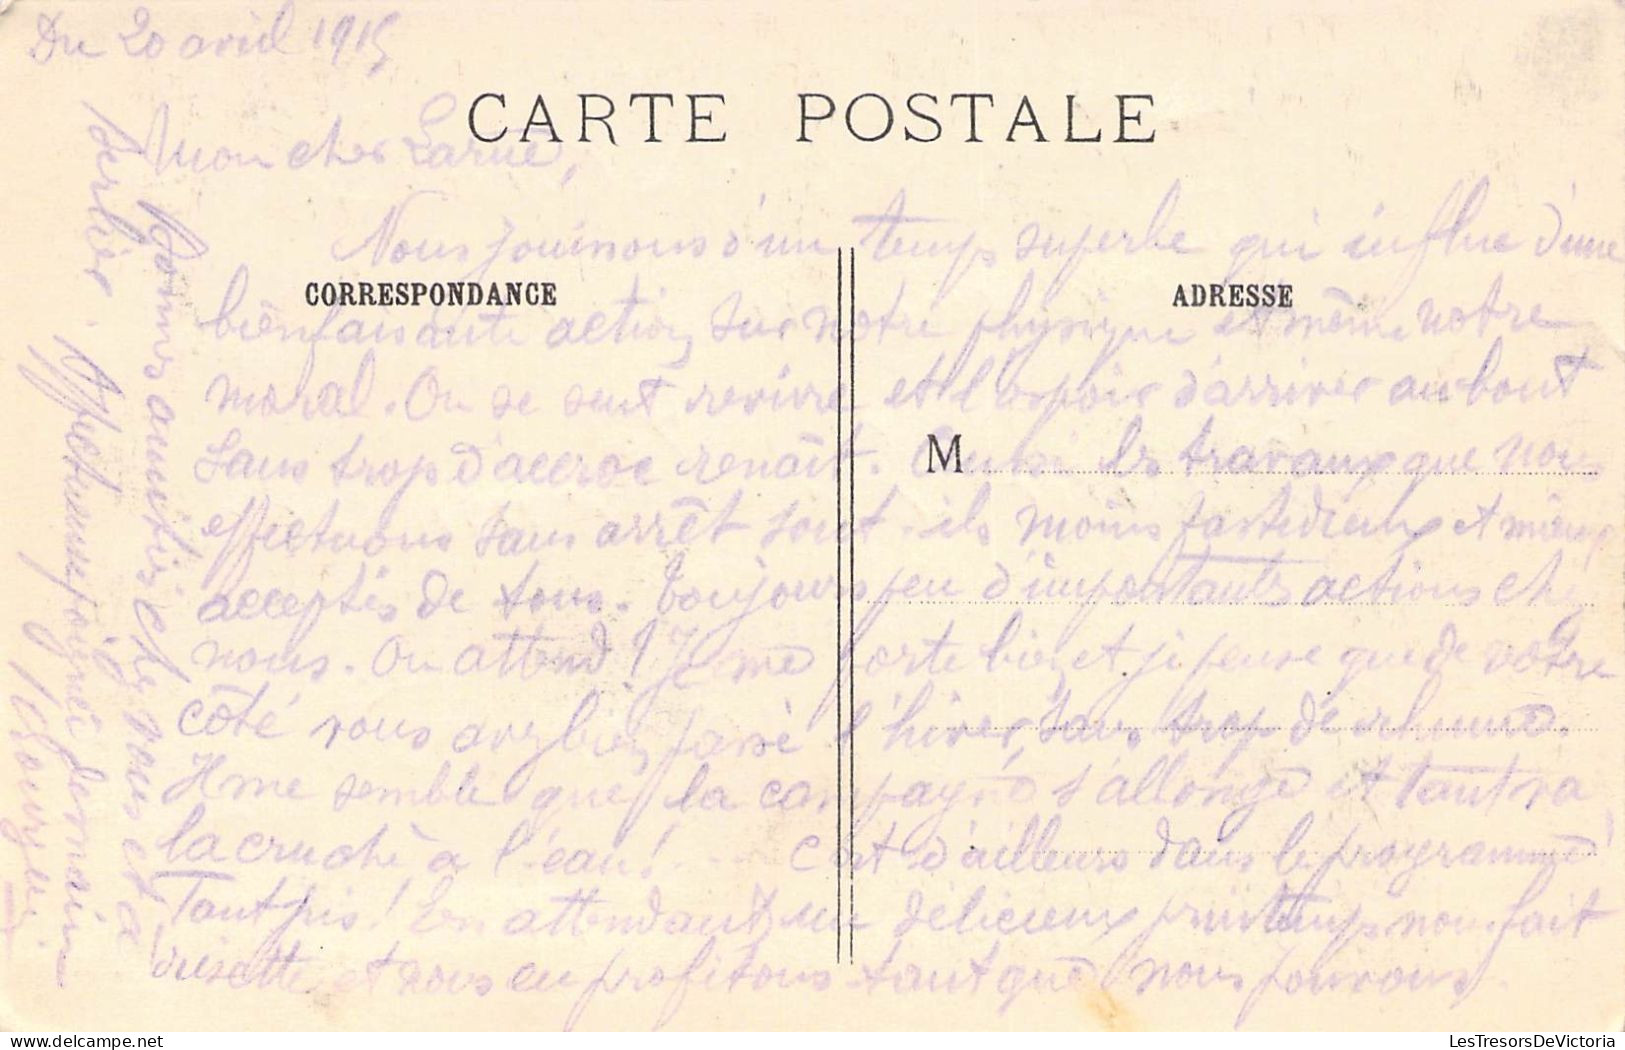 Du 20 avril 1915
CARTE POSTALE
Mon cher Larue,
Nous jouissons d'un temps superbe qui influe d'une
CORRESPONDANCE
ADRESSE
bienfaisante action sur notre physique et même notre
moral. On se sent revivre et l'espoir d'arriver au bout
sans trop d'accroc renaît. Aussi les travaux que nous
M
effectuons sans arrêt sont-ils moins fastidieux et mieux
acceptés de tous. Toujours peu d'importants actions chez
nous. On attend ! Je me porte bien et je pense que de votre
côté vous avez bien passé l'hiver, sans trop de rhume.
Il me semble que la campagne s'allonge et tant va
la cruche à l'eau! ... C'est d'ailleurs dans le programme
Tant pis! En attendant un délicieux printemps nous fait
risette et nous en profitons tant que nous pouvons.
Bonnes amitiés chez vous et à
. Affectueuse poignée de main
LesTresorsDeVictoria